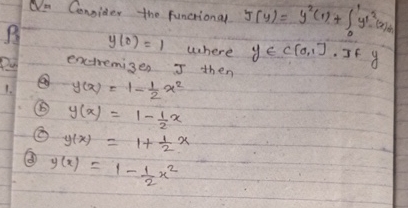 Q Consider the functional J(y) = y²(1) + ∫₀¹ y'²(x)dx
y(0) = 1 where y ∈ C[0,1]. If y
extremizes J then
1. ⓐ y(x) = 1 - 1/2 x²
ⓑ y(x) = 1 - 1/2 x
ⓒ y(x) = 1 + 1/2 x
ⓓ y(x) = 1 - 1/2 x²